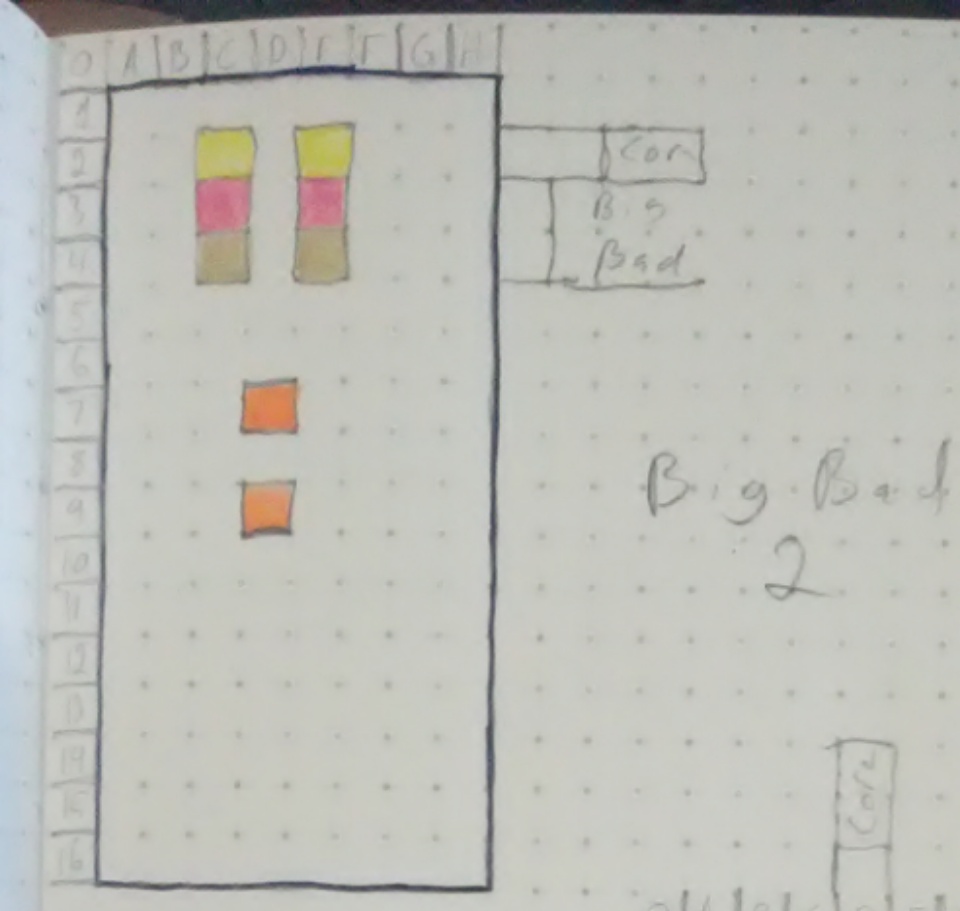 0 A B C D E F G H
1
2
3
4
5
6
7
8
9
10
11
12
13
14
15
16
Cor
Big
Bad
Big Bad
2
Core